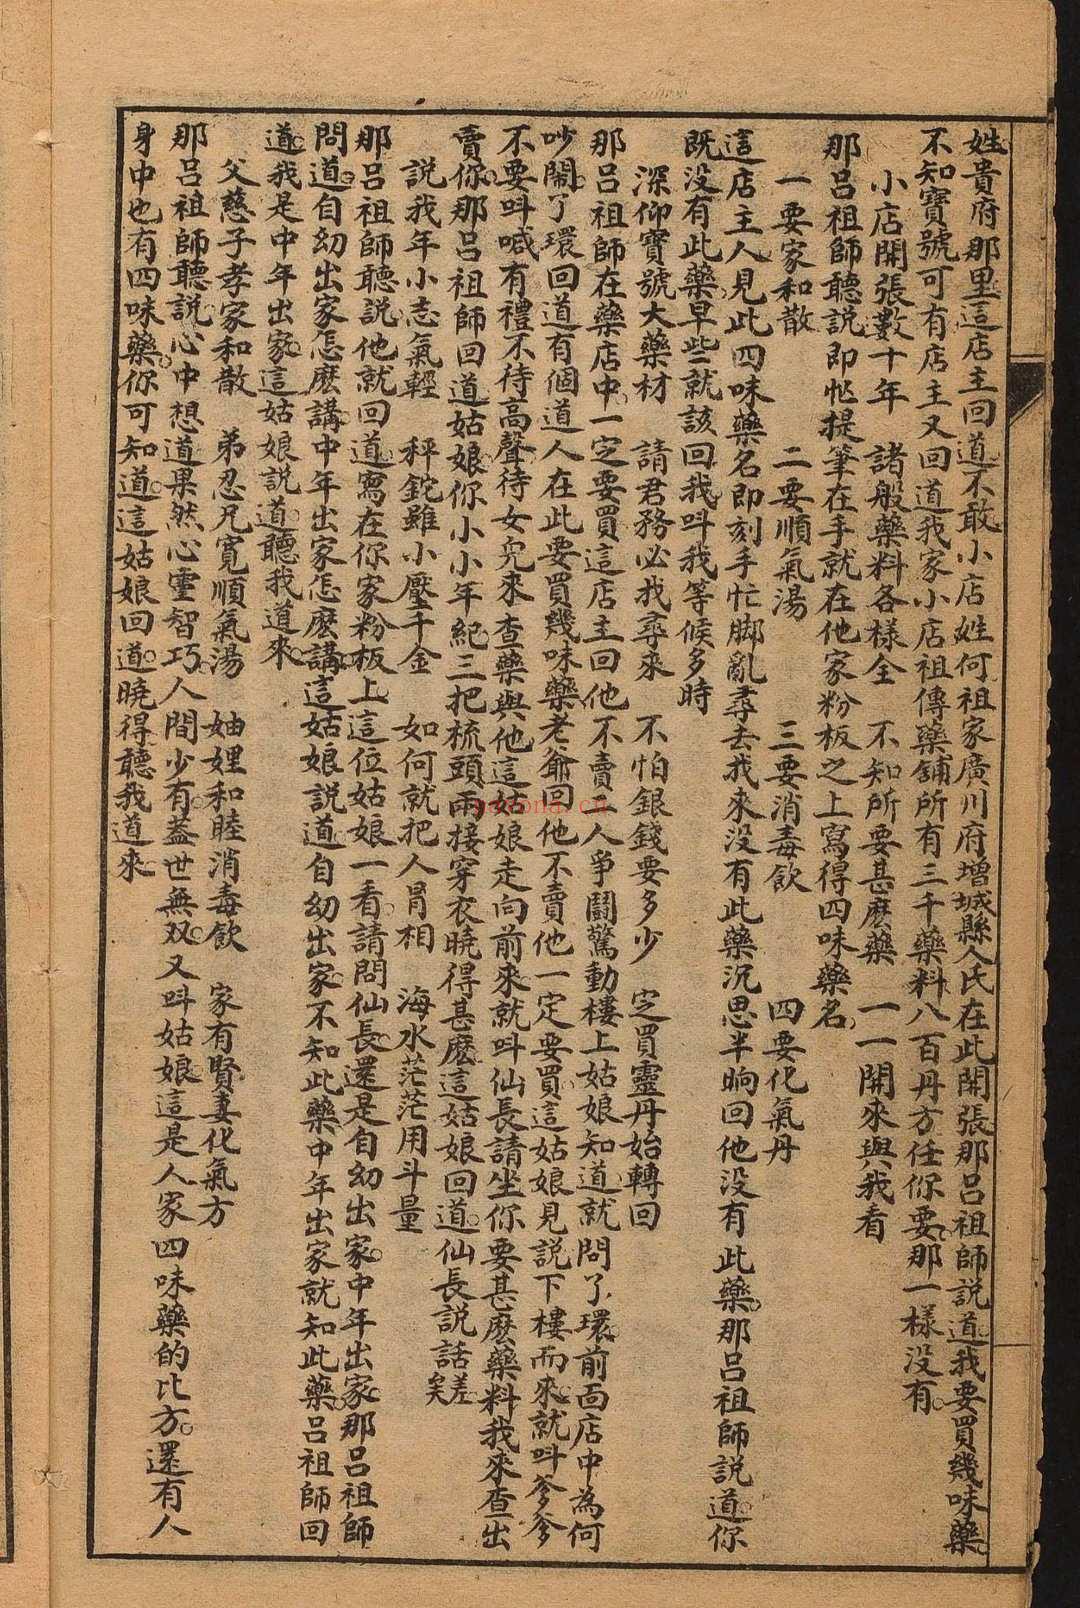 姓貴府那里這店主回道不敢小店姓何祖家廣川府增城縣人氏在此開張那吕祖師説道我要買幾味藥
不知寶號可有店主又回道我家小店祖傳藥舖所有三千藥料八百丹方任你要那一樣没有
小店開張數十年　諸般藥料各樣全　不知所要甚麽藥　一一開來與我看
那吕祖師聽説即忙提筆在手就在他家粉板之上寫得四味藥名
一要家和散　二要順氣湯　三要消毒飲　四要化氣丹
這店主人見此四味藥名即刻手忙脚亂尋去我來没有此藥沉思半晌回他没有此藥那吕祖師説道你
既没有此藥早些就該回我呌我等候多時
深仰寶號大藥材　請君務必我尋來　不怕銀錢要多少　定買靈丹始轉回
那吕祖師在藥店中一定要買這店主回他不賣二人爭鬪驚動樓上姑娘知道就問了環前靣店中為何
吵鬧了環回道有個道人在此要買幾味藥老爺回他不賣他一定要買這姑娘見説下樓而來就呌爹爹
不要呌喊有禮不待高聲待女皃來查藥與他這姑娘走向前來就呌仙長請坐你要甚麽藥料我來查出
賣你那吕祖師回道姑娘你小小年紀三把梳頭兩接穿衣曉得甚麽這姑娘回道仙長説話差矣
説我年小志氣輕　秤鉈雖小壓千金　如何就把人冐相　海水茫茫用斗量
那吕祖師聽説他就回道寫在你家粉板上這位姑娘一看請問仙長還是自幼出家中年出家那吕祖師
問道自幼出家怎麽講中年出家怎麽講這姑娘説道自幼出家不知此藥中年出家就知此藥吕祖師回
道我是中年出家這姑娘説道聽我道來
父慈子孝家和散　弟忍兄寬順氣湯　妯娌和睦消毒飲　家有賢妻化氣方
那吕祖師聽説心中想道果然心靈智巧人間少有蓋世無双又呌姑娘這是人家四味藥的比方還有人
身中也有四味藥你可知道這姑娘回道曉得聽我道來